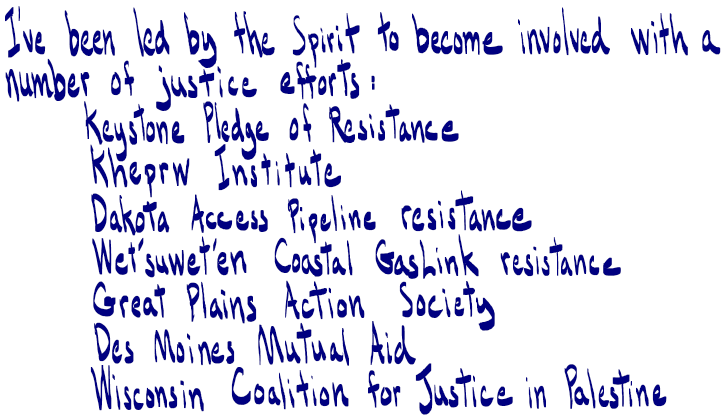 I've been led by the Spirit to become involved with a
number of justice efforts:
Keystone Pledge of Resistance
Kheprw Institute
Dakota Access Pipeline resistance
Wet'suwet'en Coastal GasLink resistance
Great Plains Action Society
Des Moines Mutual Aid
Wisconsin Coalition for Justice in Palestine